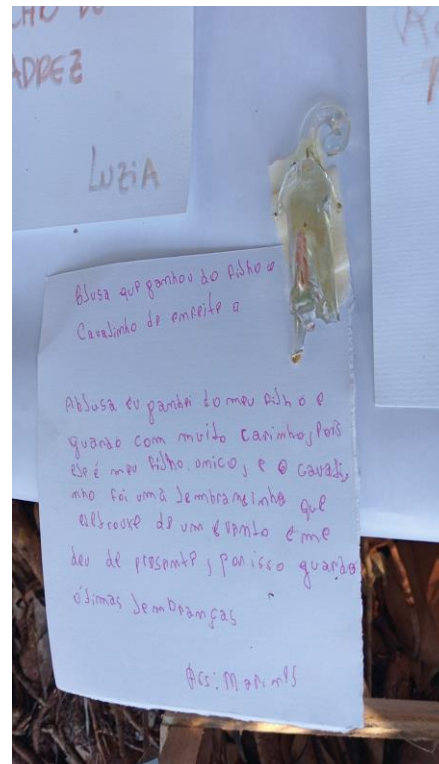 LHO DE
ADREZ
LUZIA
Blusa que ganhou do filho e
Cavalinho de enfeite o
Ablusa eu ganhei do meu filho e
guardo com muito carinho, pois
ele é meu filho, unico, e o cavali,
nho foi uma lembransinha que
eletrouxe de um evento e me
deu de presente, por isso guardo
ótimas lembranças
Ass: Marinês